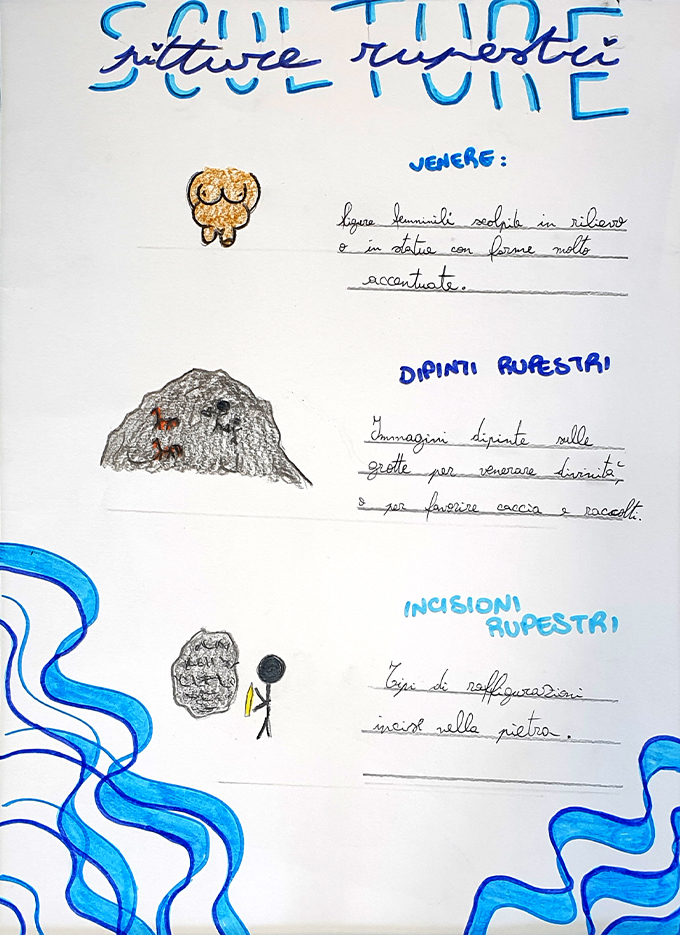 SCULTURE
pitture rupestri
VENERE:
figure femminili scolpite in rilievo
o in statue con forme molto
accentuate.
DIPINTI RUPESTRI
Immagini dipinte sulle
grotte per venerare divinità,
o per favorire caccia e raccolti.
INCISIONI
RUPESTRI
Tipi di raffigurazioni
incise nella pietra.